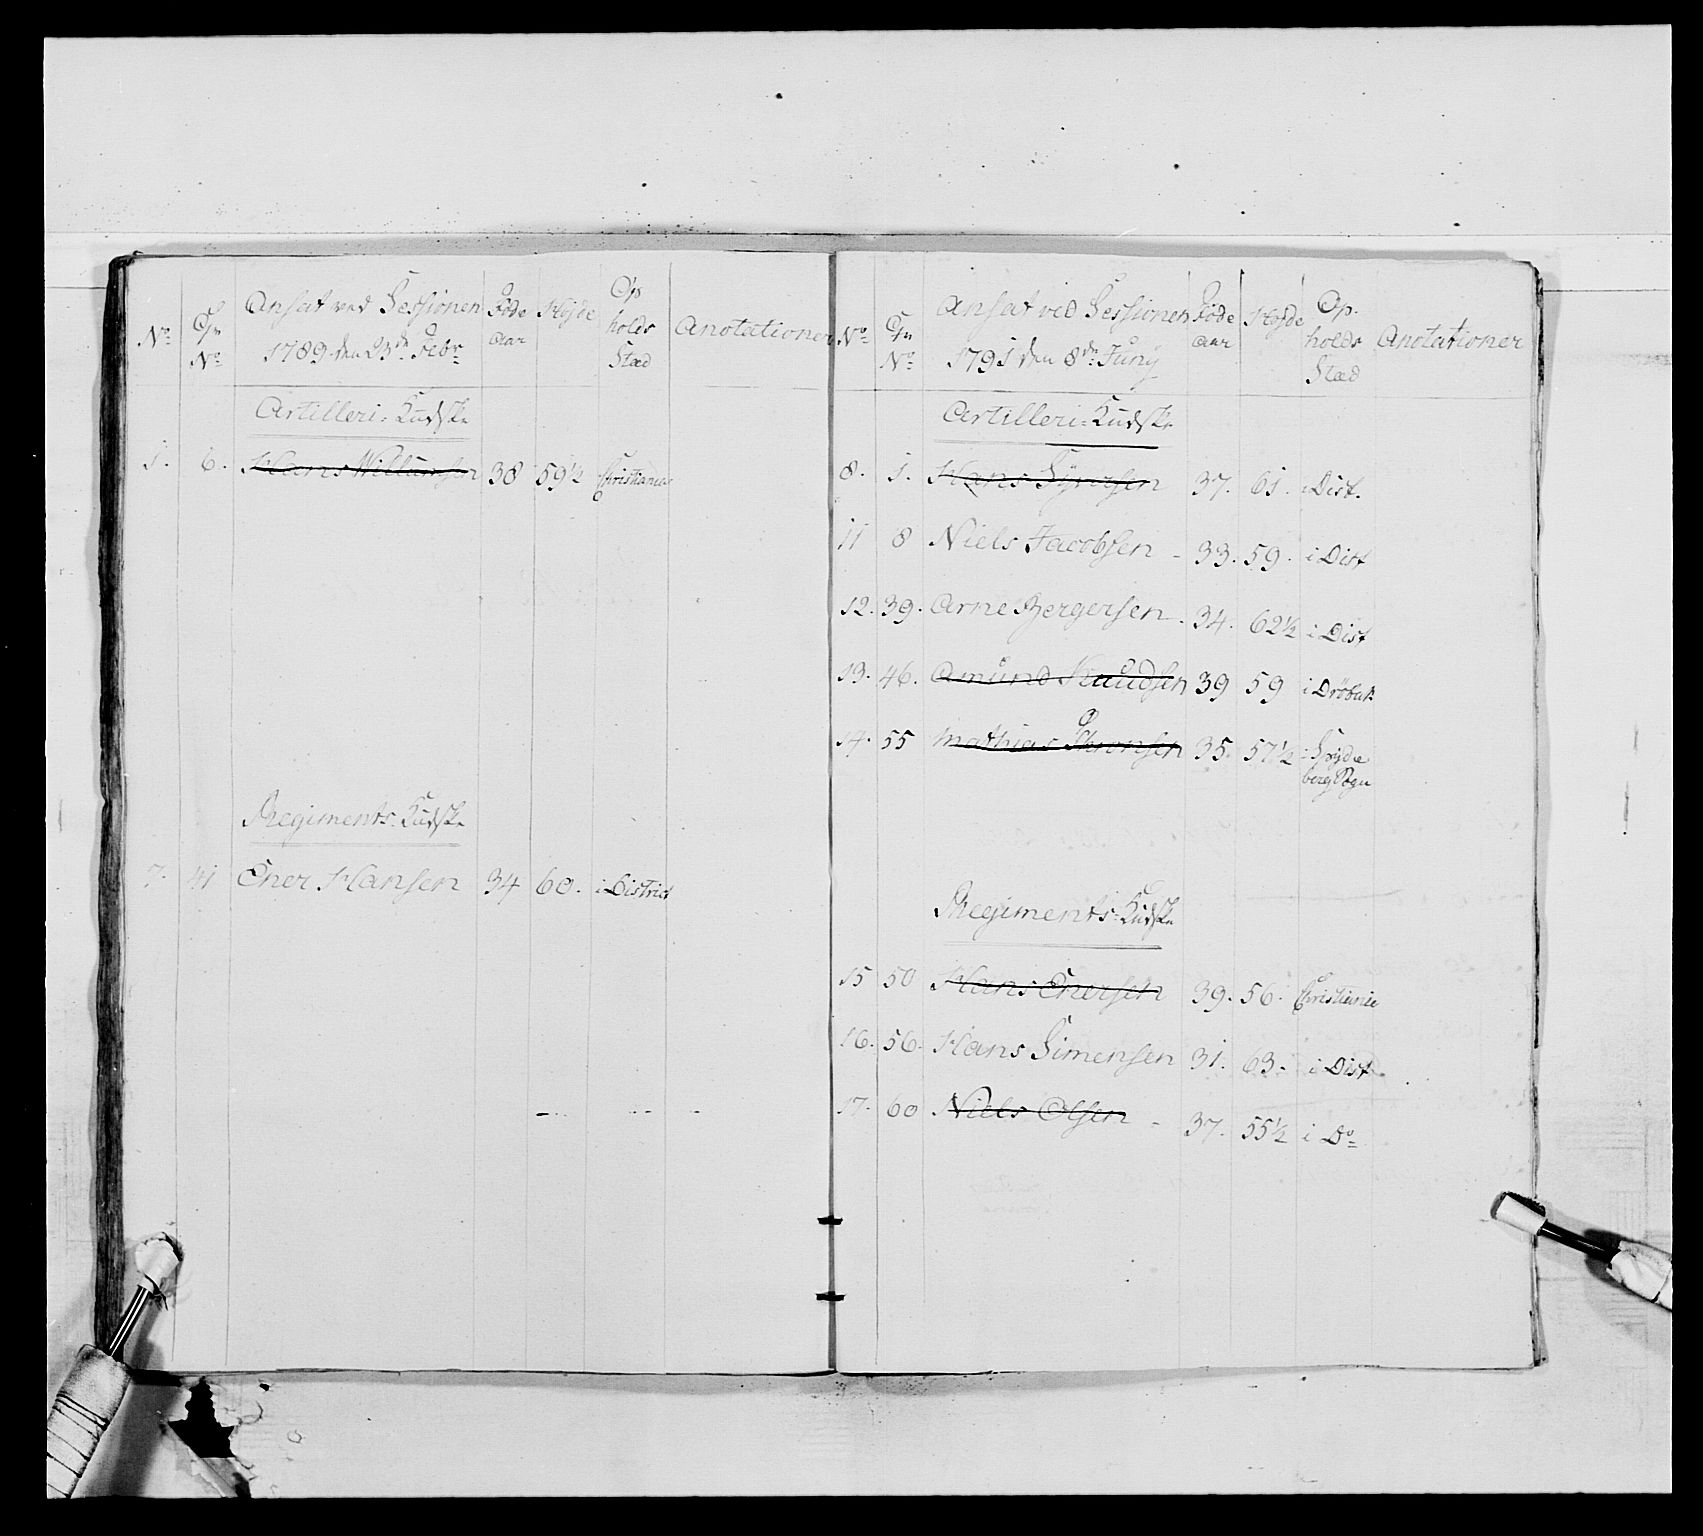 No
No
Ansat ved Sessionen
1789 den 23de Febr
Föde
Aar
Højde
Op
holds
Stæd
Anotationer
Artilleri-Kudske
1. 6. Hans Willumsen 38 59½ Christiania
Regiments-Kudske
7. 41 Ener Hansen 34 60. i District
No
No
Ansat ved Sessionen
1791 den 8de Juny
Föde
Aar
Højde
Op-
holds
Stæd
Anotationer
Artilleri-Kudske
8. 1. Hans Syversen 37. 61. i Dist.
11 8 Niels Jacobsen - 33. 59. i Dist
12. 39. Arne Bergersen. 34. 62½ i Dist
13. 46. Amund Knudsen 39 59 i Dröbak
14. 55 Mathias 35. 57½ Spyde
berg Pgn
Regiments-Kudske
15 50 Hans Enersen 39. 56. Christiania
16. 56. Hans Simensen 31. 63. i Dist.
17. 60 Niels Olsen - 37. 55½ i Do